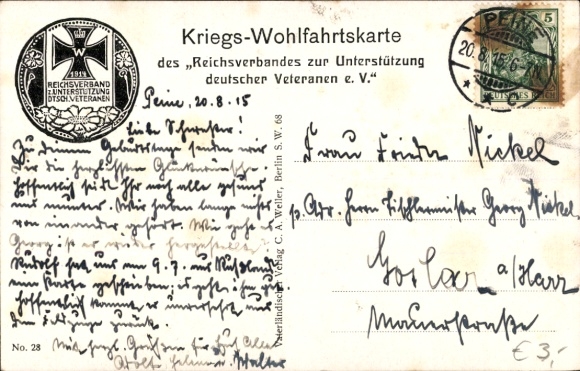 Kriegs-Wohlfahrtskarte
des „Reichsverbandes zur Unterstützung
deutscher Veteranen e. V."
W
1914
REICHSVERBAND
Z. UNTERSTÜTZUNG
DTSCH. VETERANEN
PEINE
20.8.15.6-7N.
* * C
5
DEUTSCHES REICH
Peine, 20.8.15
Liebe Schwester!
Zu deinem Geburtstage senden wir
Dir die herzlichsten Glückwünsche.
Hoffentlich seid Ihr noch alle gesund
und munter. Wir haben lange nichts
von einander gehört. Wie geht es
Georg, ist er wieder hergestellt?
Rudolf hat uns am 9.7. aus Rußland
eine Karte geschrieben, es geht ihm gut
hoffentlich kommt er unversehrt aus
dem Feldzuge zurück.
Mit herzl. Grüßen für Euch Alle
Adolf, Walter
No. 28
Vaterländischer Verlag C. A. Weller, Berlin S. W. 68
Frau Frieda Nickel
p. Adr. Herrn Tischlermeister Georg Nickel
Goslar a/Harz
Mauerstraße
€ 3,-